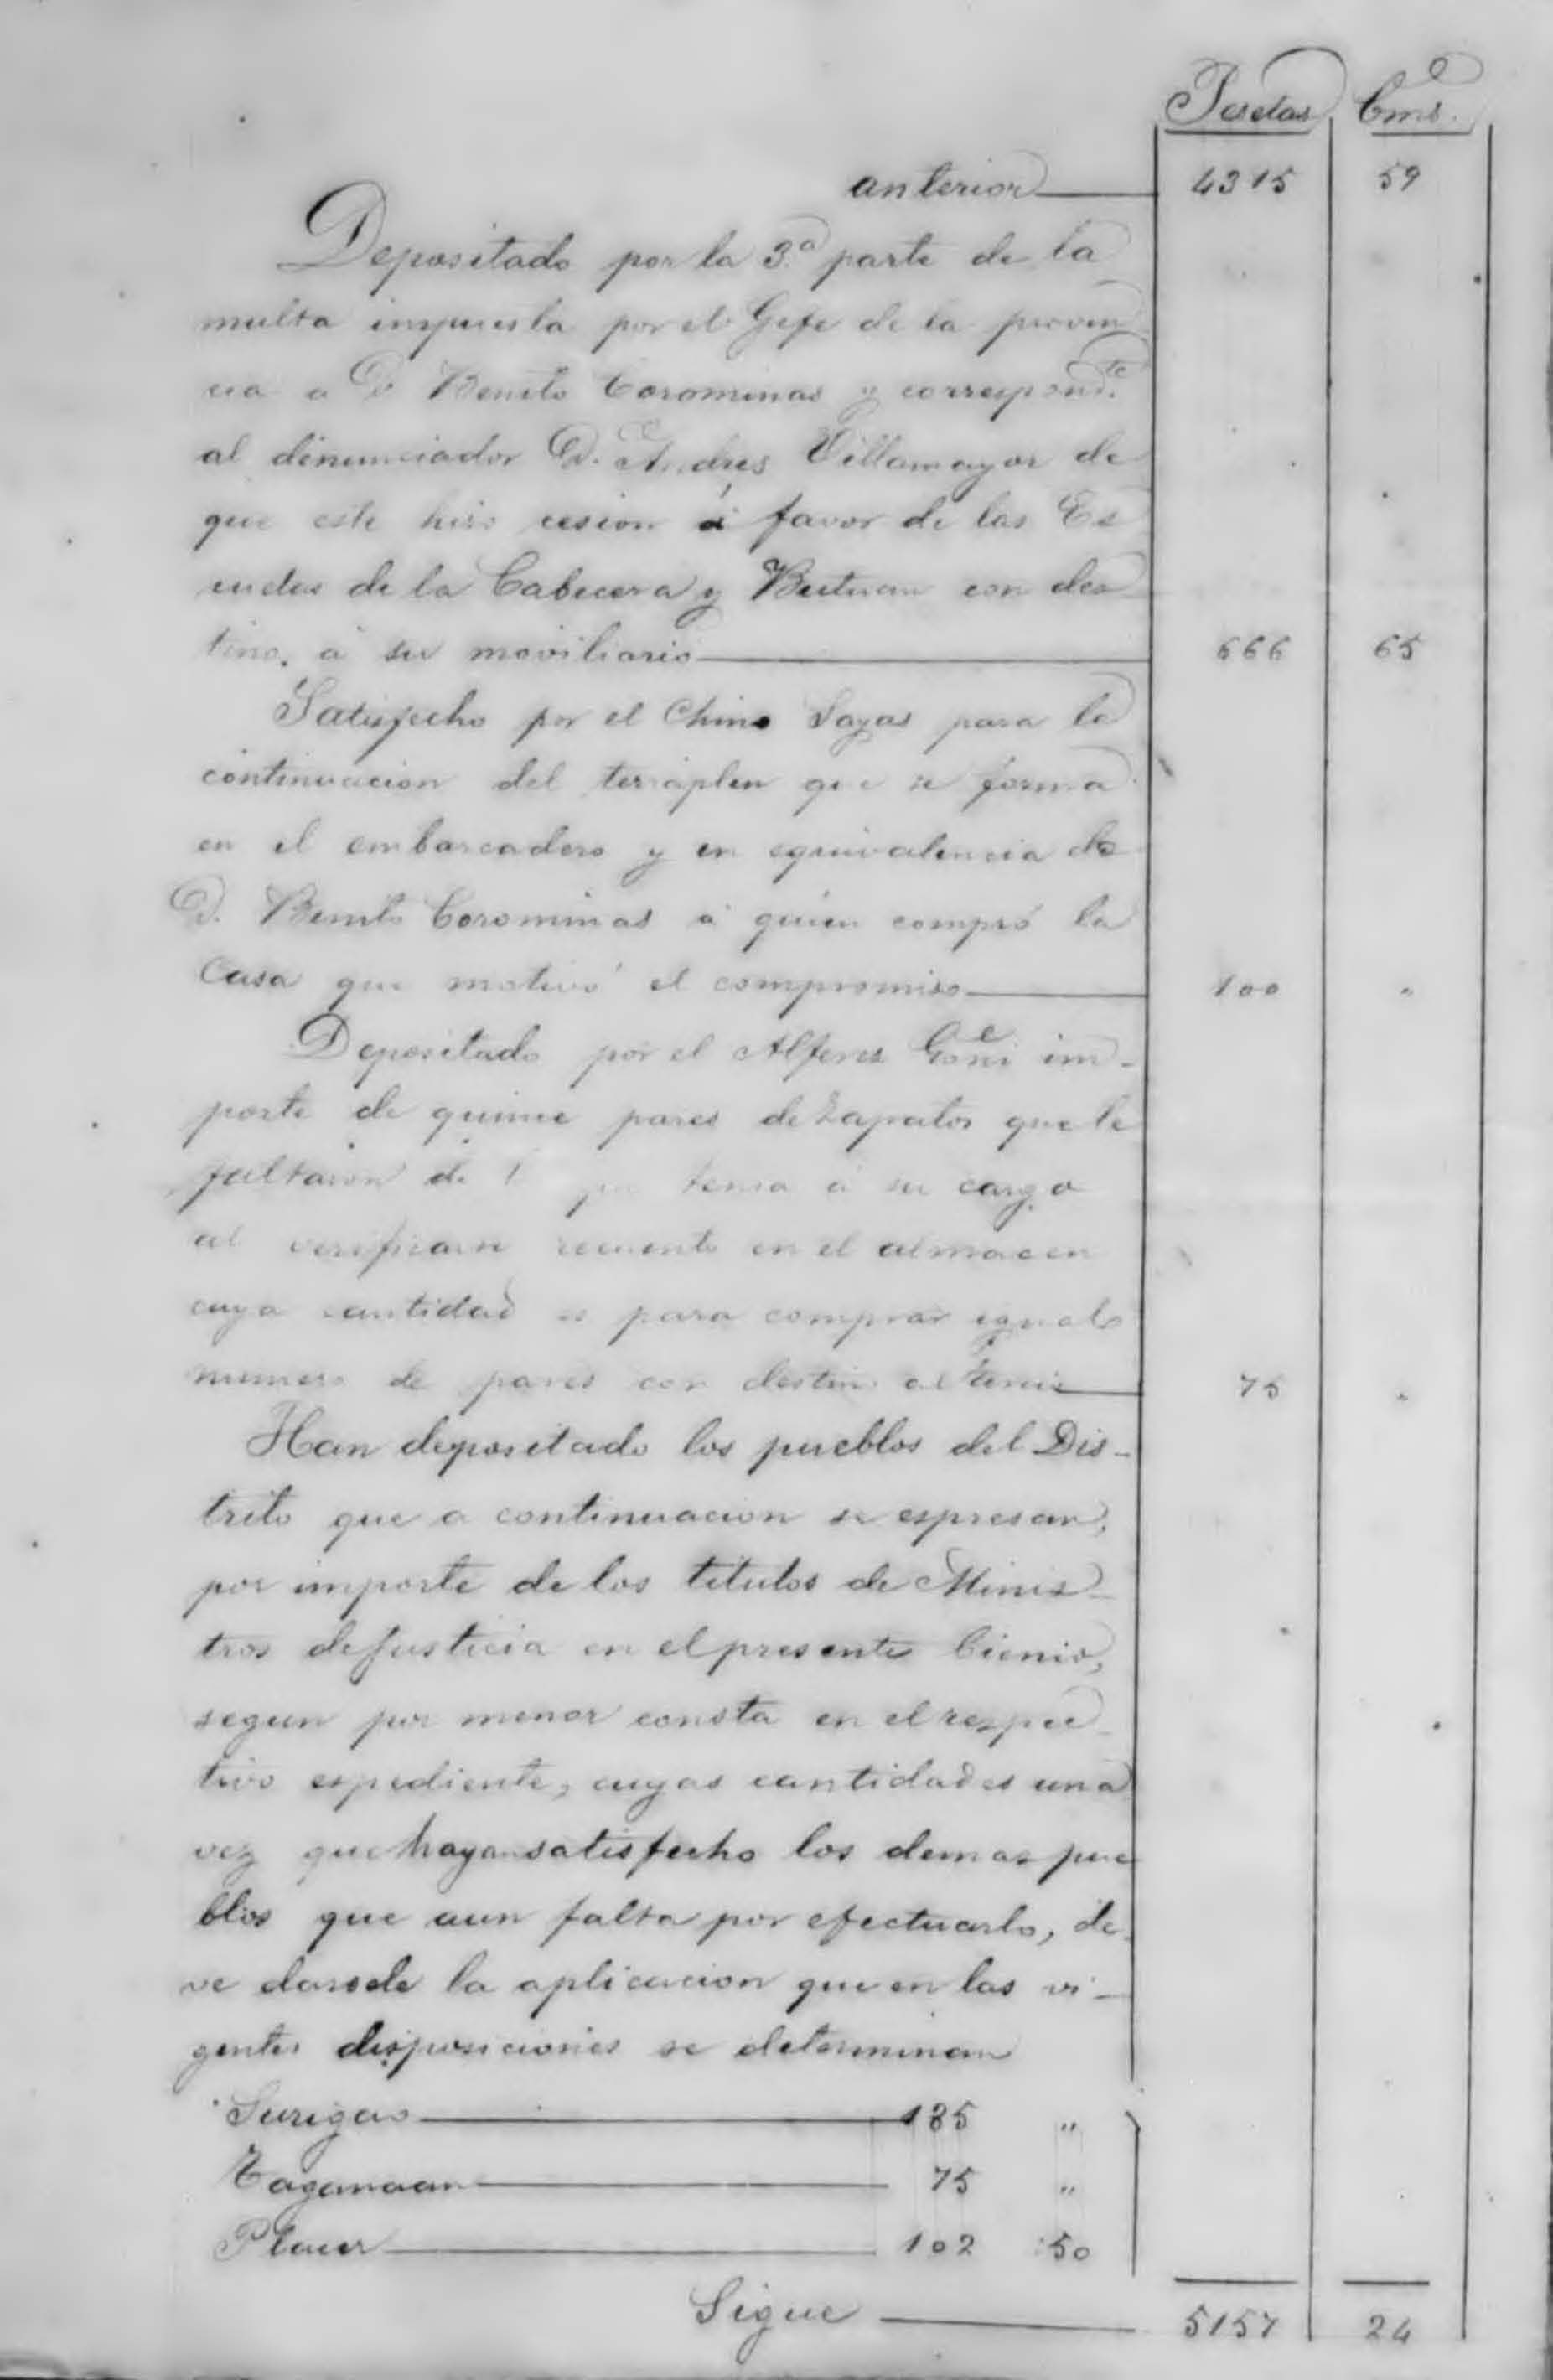 Pesetas Cms.
anterior 4315 59
Depositado por la 3.ª parte de la
multa impuesta por el Gefe de la provin
cia a D. Benito Corominas y correspond.te
al denunciador D. Andres Villamayor de
que este hizo cesion á favor de las Es
cuelas de la Cabecera y Butuan con des
tino á su moviliario 666 65
Satisfecho por el Chino Sayas para la
continuacion del terraplen que se forma
en el embarcadero y en equivalencia de
D. Benito Corominas á quien compró la
Casa que motivó el compromiso 100 "
Depositado por el Alferez Goñi im-
porte de quince pares de zapatos que le
faltaron de tenia á su cargo
al verificarse recuento en el almacen
cuya cantidad es para comprar igual
numero de pares con destino al Tercio 75 "
Han depositado los pueblos del Dis-
trito que a continuacion se espresan,
por importe de los titulos de Minis-
tros de Justicia en el presente bienio,
segun por menor consta en el respec-
tivo espediente, cuyas cantidades una
vez que hayan satisfecho los demas pue
blos que aun falta por efectuarlo, de-
ve darsele la aplicacion que en las vi-
gentes disposiciones se determinan
Surigao 185 "
Taganaan 75 "
Placer 102 50
Sigue 5157 24